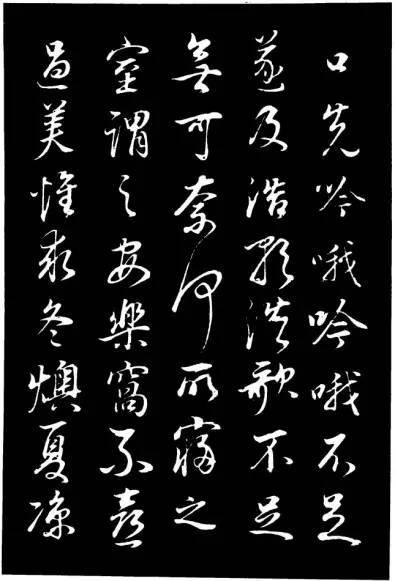 口先吟哦吟哦不足
遂及浩歌浩歌不足
無可奈何所寢之
室謂之安樂窩不喜
過美惟求冬燠夏凉